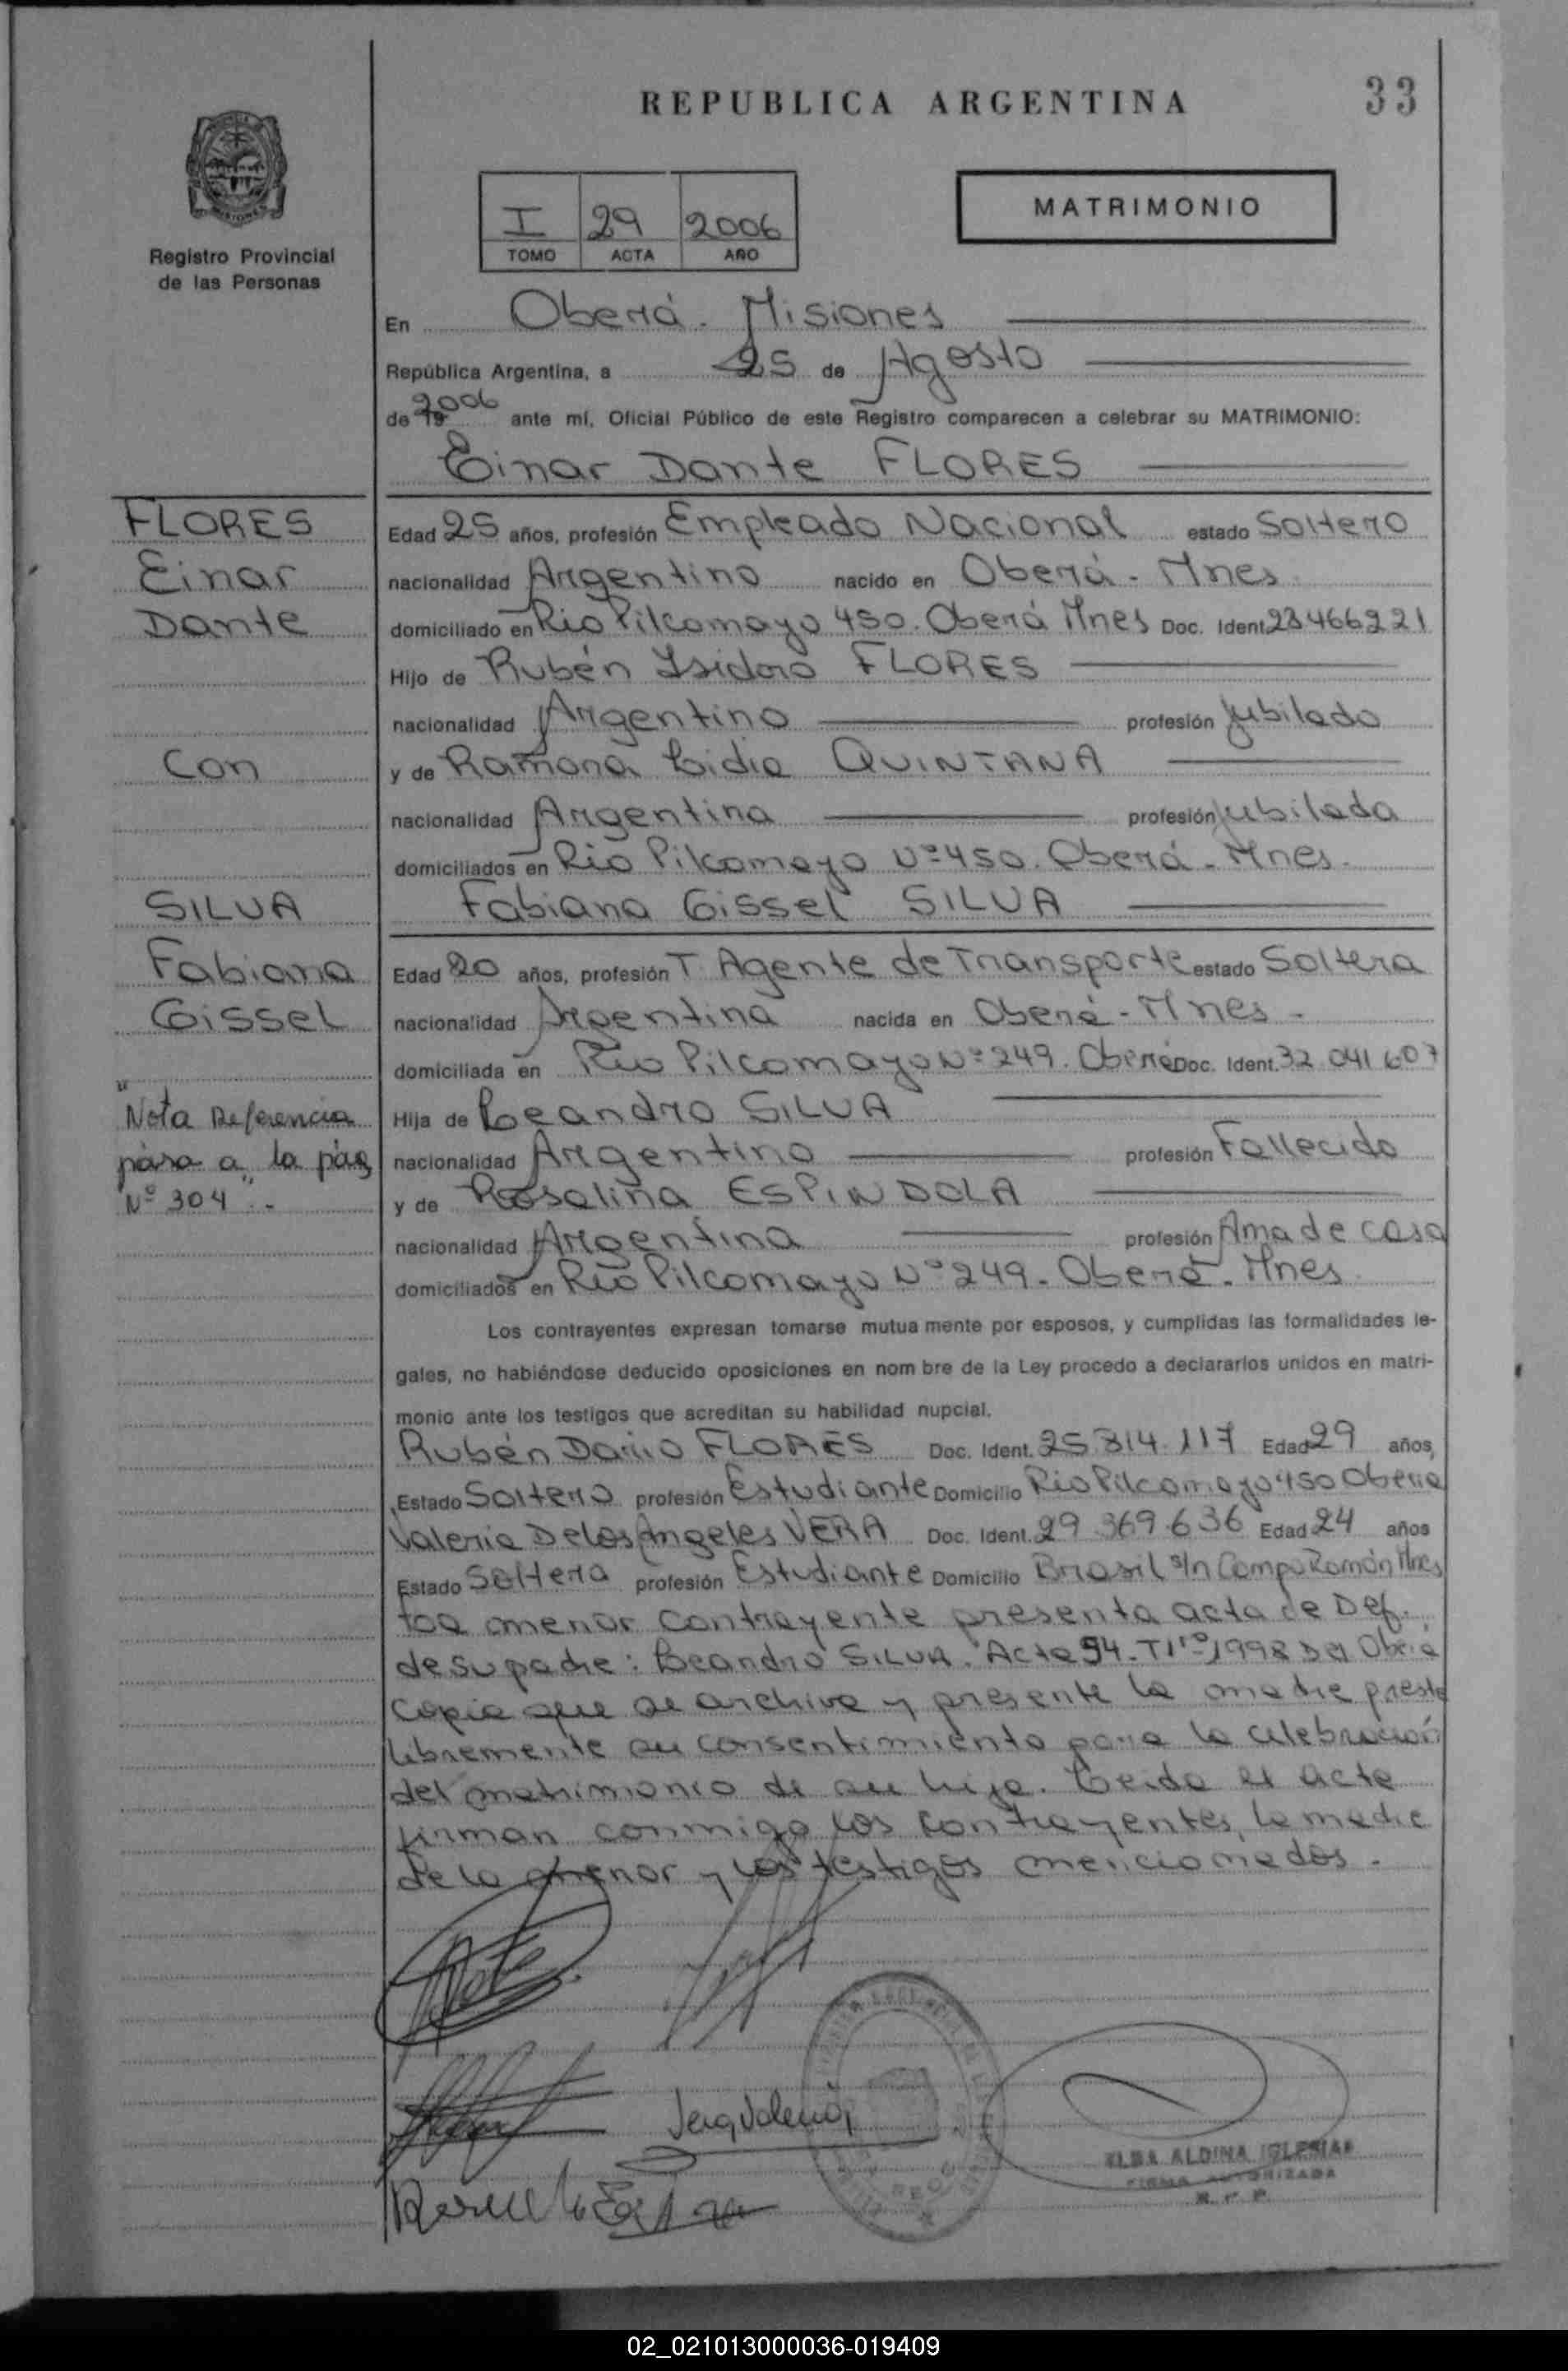 REPUBLICA ARGENTINA
33
Registro Provincial
de las Personas
I 29 2006
TOMO ACTA AÑO
MATRIMONIO
En Oberá. Misiones
República Argentina, a 25 de Agosto
de 19 2006 ante mí, Oficial Público de este Registro comparecen a celebrar su MATRIMONIO:
Einar Dante FLORES
FLORES
Einar
Dante
Con
SILVA
Fabiana
Gissel
"Nota Referencia
pasa a la pág
Nº 304".-
Edad 25 años, profesión Empleado Nacional estado Soltero
nacionalidad Argentino nacido en Oberá - Mnes.
domiciliado en Rio Pilcomayo 450. Oberá Mnes Doc. Ident. 28466221
Hijo de Rubén Isidoro FLORES
nacionalidad Argentino profesión Jubilado
y de Ramona Lidia QUINTANA
nacionalidad Argentina profesión Jubilada
domiciliados en Rio Pilcomayo Nº 450. Oberá - Mnes.
Fabiana Gissel SILVA
Edad 20 años, profesión T. Agente de Transporte estado Soltera
nacionalidad Argentina nacida en Oberá - Mnes -
domiciliada en Rio Pilcomayo Nº 249. Oberá Doc. Ident. 32.041.607
Hija de Leandro SILVA
nacionalidad Argentino profesión Fallecido
y de Rosalina ESPINDOLA
nacionalidad Argentina profesión Ama de casa
domiciliados en Rio Pilcomayo Nº 249 - Oberá - Mnes.
Los contrayentes expresan tomarse mutua mente por esposos, y cumplidas las formalidades le-
gales, no habiéndose deducido oposiciones en nom bre de la Ley procedo a declararlos unidos en matri-
monio ante los testigos que acreditan su habilidad nupcial.
Rubén Dario FLORES Doc. Ident. 25.814.117 Edad 29 años,
Estado Soltero profesión Estudiante Domicilio Rio Pilcomayo 450 Oberá
Valeria De los Angeles VERA Doc. Ident. 29.369.636 Edad 24 años
Estado Soltera profesión Estudiante Domicilio Brasil s/n Campo Ramón Mnes
menor contrayente presenta acta de Def.
de su padre: Leandro SILVA. Acta 94. T 1º 1998 Del Oberá
copia que se archiva y presente la madre presta
libremente su consentimiento para la celebración
del matrimonio de su hija. Leida el acta
firman conmigo los contrayentes, la madre
de la menor y los testigos mencionados.
ELBA ALDINA IGLESIAS
FIRMA AUTORIZADA
R. P. P.
02_021013000036-019409